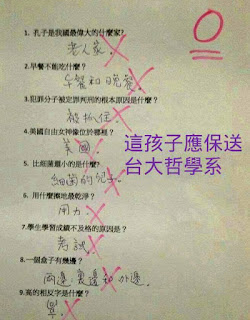 1. 孔子是我國最偉大的什麼家?
老人家
2.早餐不能吃什麼?
午餐和晚餐
3.犯罪分子被定罪判刑的根本原因是什麼?
被抓住.
4.美國自由女神像位於哪裡?
美國
這孩子應保送
台大哲學系
5. 比細菌還小的是什麼?
細菌的兒子
6. 用什麼擦地最乾淨?
用力.
7.學生學習成績不及格的原因是?
考試.
8.一個盒子有幾邊?
兩邊.裏邊和外邊.
9.亮的相反字是什麼?
0